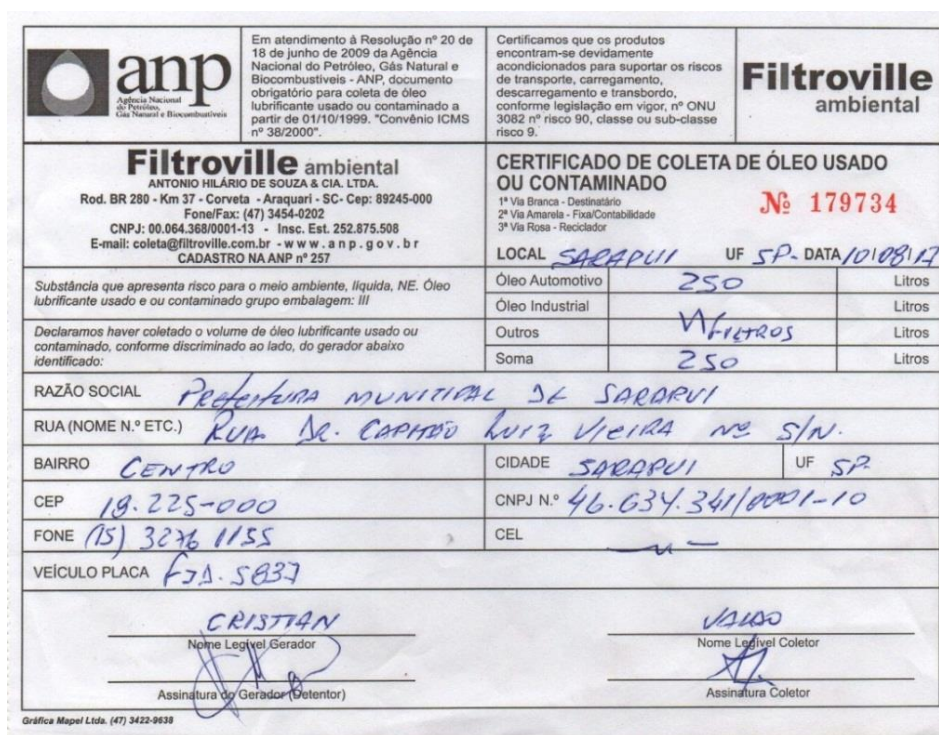 anp
Agência Nacional
do Petróleo,
Gás Natural e Biocombustíveis
Em atendimento à Resolução nº 20 de
18 de junho de 2009 da Agência
Nacional do Petróleo, Gás Natural e
Biocombustíveis - ANP, documento
obrigatório para coleta de óleo
lubrificante usado ou contaminado a
partir de 01/10/1999. "Convênio ICMS
nº 38/2000".
Certificamos que os produtos
encontram-se devidamente
acondicionados para suportar os riscos
de transporte, carregamento,
descarregamento e transbordo,
conforme legislação em vigor, nº ONU
3082 nº risco 90, classe ou sub-classe
risco 9.
Filtroville
ambiental
Filtroville ambiental
ANTONIO HILÁRIO DE SOUZA & CIA. LTDA.
Rod. BR 280 - Km 37 - Corveta - Araquari - SC- Cep: 89245-000
Fone/Fax: (47) 3454-0202
CNPJ: 00.064.368/0001-13 - Insc. Est. 252.875.508
E-mail: coleta@filtroville.com.br - www.anp.gov.br
CADASTRO NA ANP nº 257
CERTIFICADO DE COLETA DE ÓLEO USADO
OU CONTAMINADO
1ª Via Branca - Destinatário
2ª Via Amarela - Fixa/Contabilidade
3ª Via Rosa - Reciclador
Nº 179734
LOCAL SARAPUI UF SP- DATA 10/08/17
Substância que apresenta risco para o meio ambiente, líquida, NE. Óleo
lubrificante usado e ou contaminado grupo embalagem: III
Declaramos haver coletado o volume de óleo lubrificante usado ou
contaminado, conforme discriminado ao lado, do gerador abaixo
identificado:
Óleo Automotivo 250 Litros
Óleo Industrial Litros
Outros FILTROS Litros
Soma 250 Litros
RAZÃO SOCIAL PREFEITURA MUNICIPAL DE SARAPUI
RUA (NOME N.º ETC.) RUA DR. CAPITÃO LUIZ VIEIRA Nº S/N.
BAIRRO CENTRO
CIDADE SARAPUI UF SP-
CEP 18.225-000
CNPJ N.º 46.634.341/0001-10
FONE (15) 3276 1155
CEL
VEÍCULO PLACA 5837
CRISTIAN
Nome Legível Gerador
Assinatura do Gerador (Detentor)
VALDO
Nome Legível Coletor
Assinatura Coletor
Gráfica Mapel Ltda. (47) 3422-9638